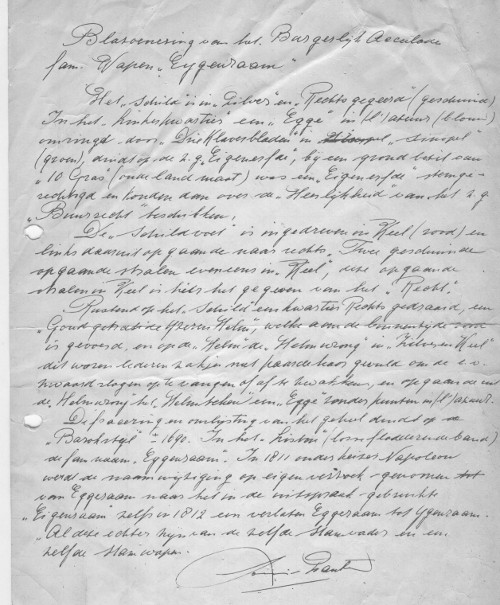 Blasoenering van het Burgerlijk Accolade
fam. Wapen „Eggenraam"
Het „Schild" is in „Zilver" en „Rechts gegeerd" (geschuind)
In het „Linkerkwartier" een „Egge" in 't „azuur" (blauw)
omringd door „Drie Klaverbladen" in „sinopel"
(groen), duidt op de z.g. Eigenerfde, bij een grond bezit van
„10 Gras" (oude land maat) was een „Eigenerfde" stemge-
rechtigd en konden dan over de „Heerlijkheid" van het z.g.
„Buurrecht" beschikken.
De „Schildvoet" is ingedreven in Keel (rood) en
links daaruit opgaande naar rechts. Twee geschuinde
opgaande stralen eveneens in „Keel", deze opgaande
stralen in Keel is hier het gegeven van het „Recht".
Rustend op het Schild een kwartier Rechts gedraaid, een
„Goud getraliede IJzeren Helm", welke aan de binnenzijde rood
is gevoerd, en op de Helm de „Helmwrong" in „Zilver en Keel"
dit waren lederen zakjes met paardehaar gevuld om de
zwaardslagen op te vangen of af te zwakken, en opgaande van
de Helmwrong het Helmteken een „Egge" zonder punten in 't azuur.
De sviering en omlijsting van het geheel duidt op de
„Barokstijl" ± 1690. In het lint (los fladderende band)
de fam. naam „Eggenraam". In 1811 onder keizer Napoleon
werd de naamwijziging op eigen verzoek genomen tot
van Eggeraam naar het in de uitspraak gebruikte
„Eigenraam" zelfs in 1812 een verlaten Eggeraam tot Ygenraam.
„Al deze echter zijn van de zelfde Stamvader en en
zelfde Stamwapen.